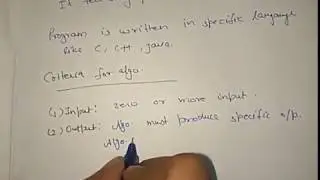 It
Program is written in specific language
like C, C++, Java.
Criteria for algo.
(1) Input: zero or more input.
(2) Output: Algo. must produce specific o/p.
Algo.